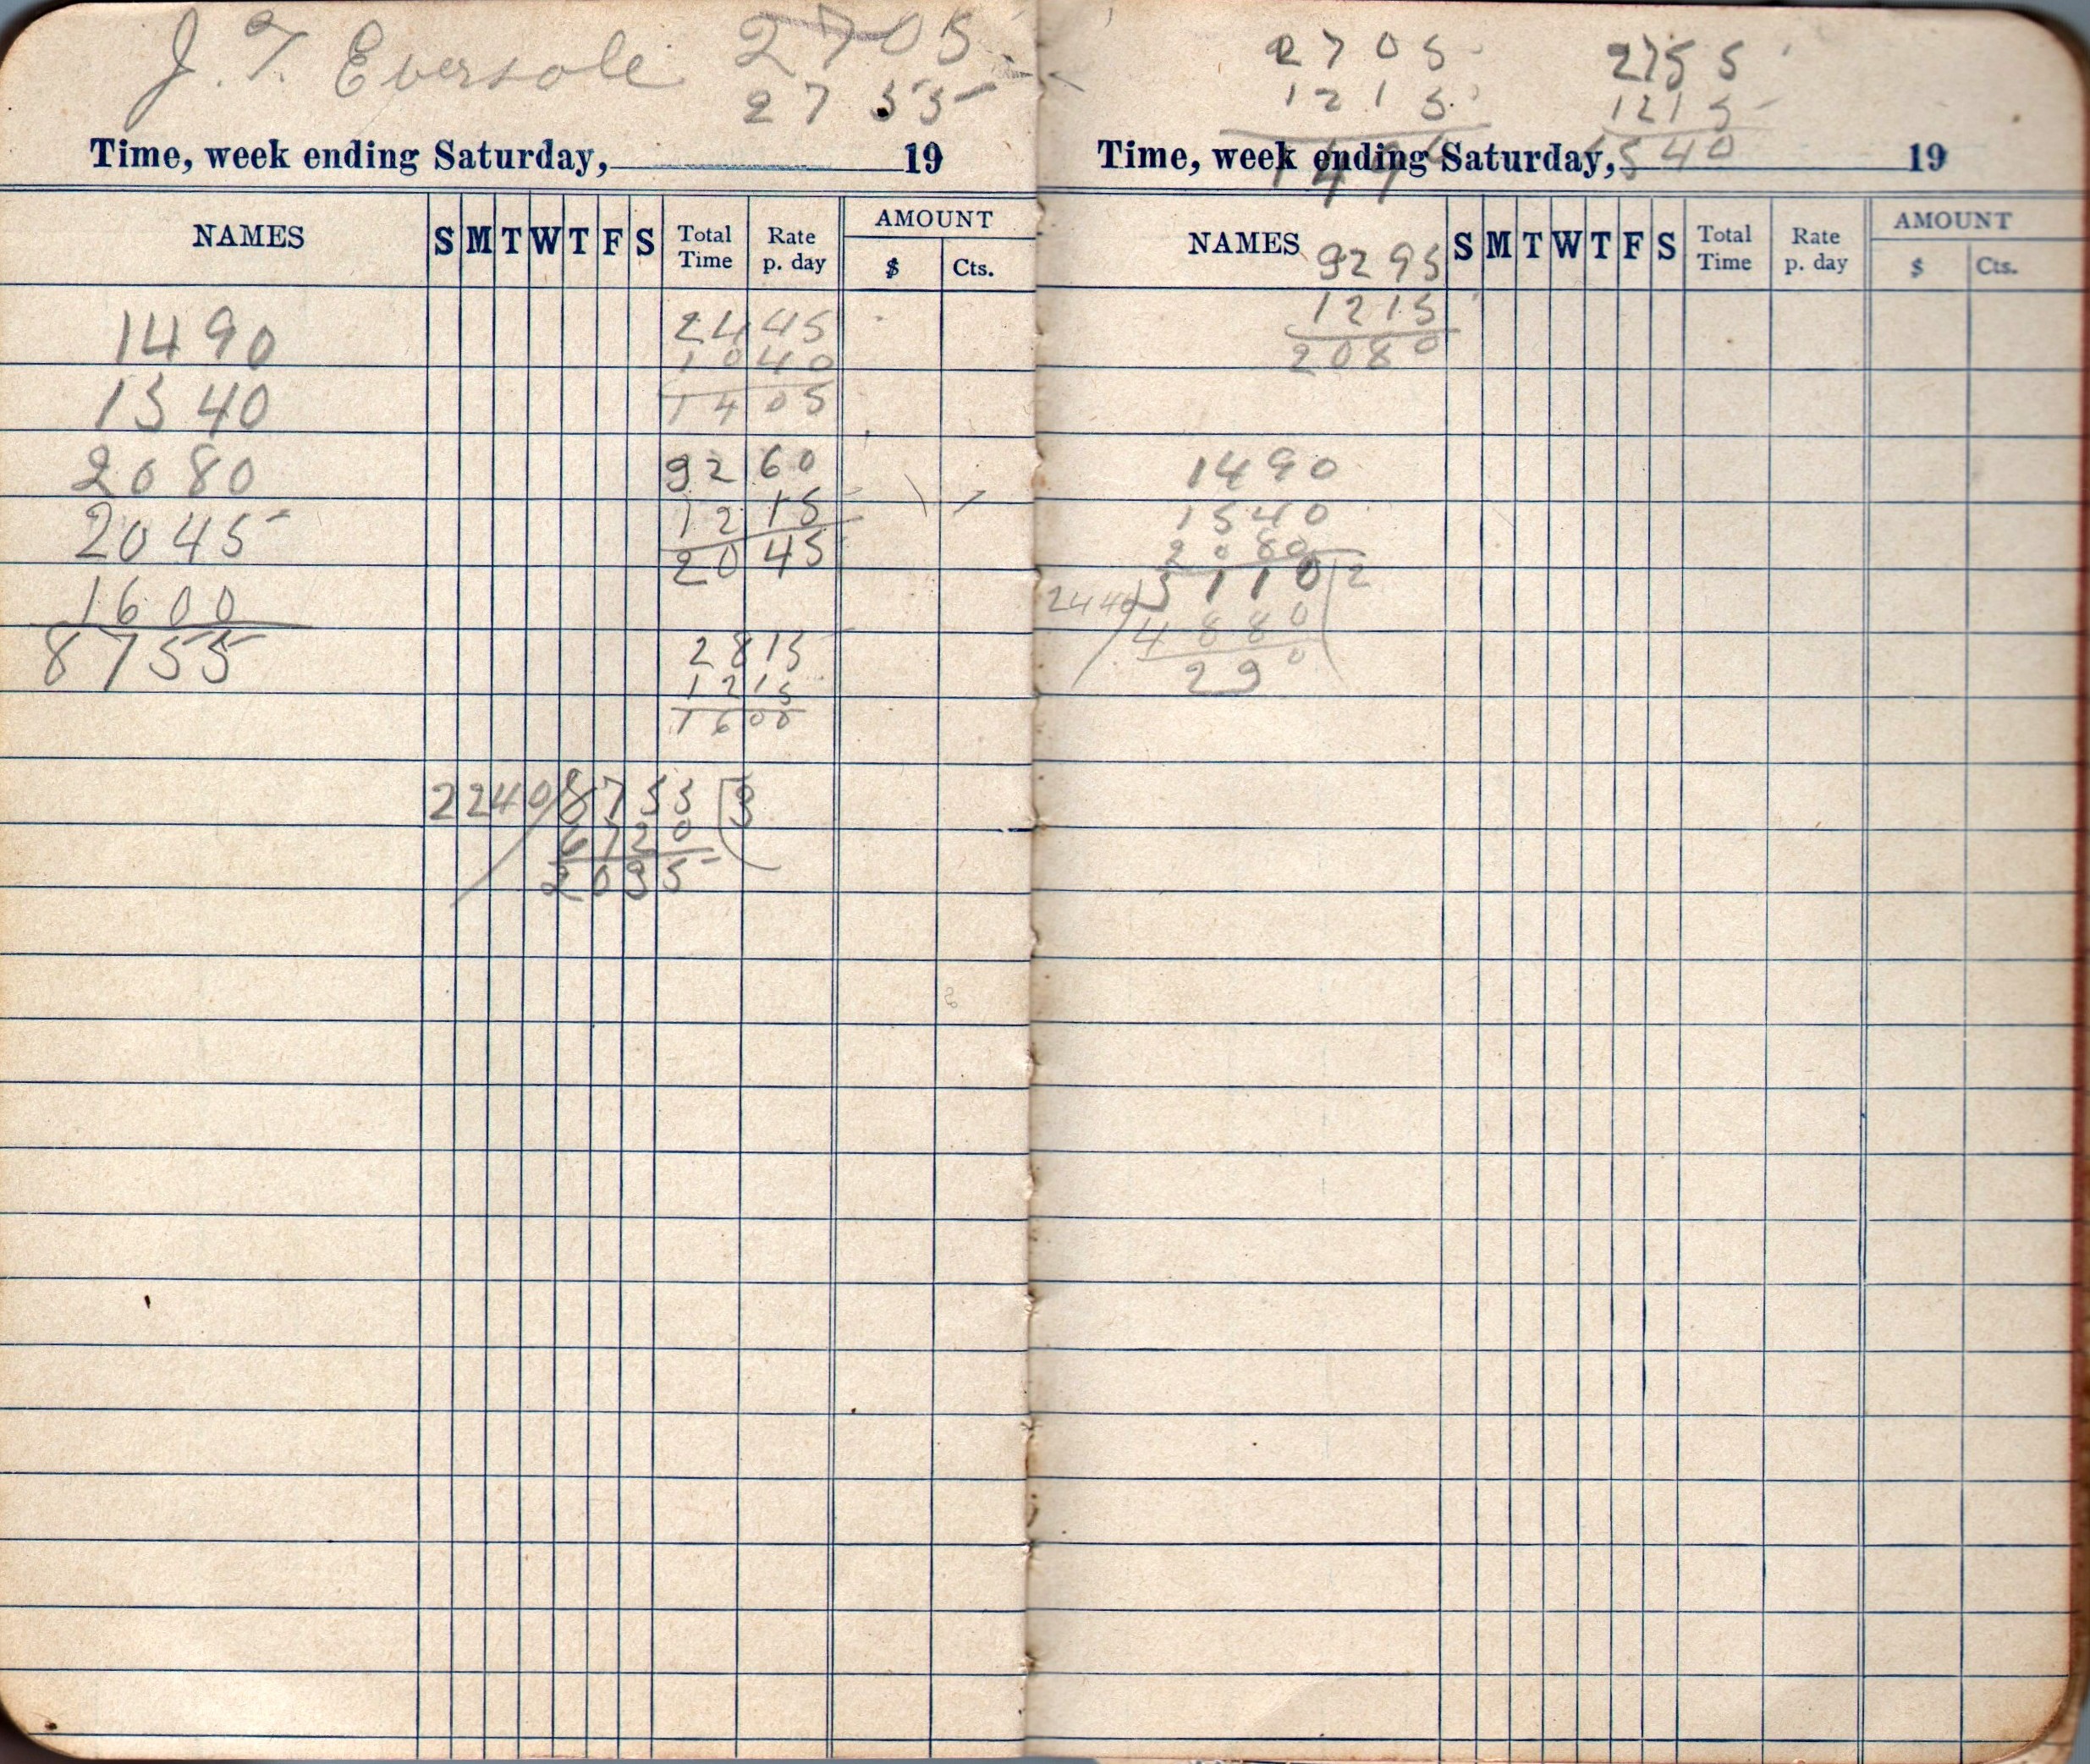 J. T. Eversole 2705
2755
Time, week ending Saturday, 19
NAMES S M T W T F S Total Time Rate p. day AMOUNT $ Cts.
1490
1540
2080
2045
1600
8755
2445
1040
1405
3260
1215
2045
2815
1215
1600
2240/8755(3
6720
2035
2705
1215
1490
2755
1215
1540
Time, week ending Saturday, 19
NAMES S M T W T F S Total Time Rate p. day AMOUNT $ Cts.
3295
1215
2080
1490
1540
2080
2440/5110(2
4880
290